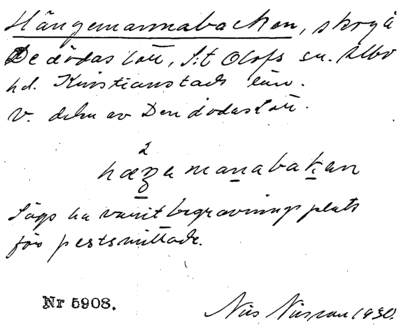 Hängemannabacken, skog å
De dödas lott, S:t Olofs sn. Albo
hd. Kristianstads län.
v. delen av Den dödas lott.
2
Sägs ha varit begravningsplats
för pestsmittade.
Nr 5908.
Nils Nilsson 1930.